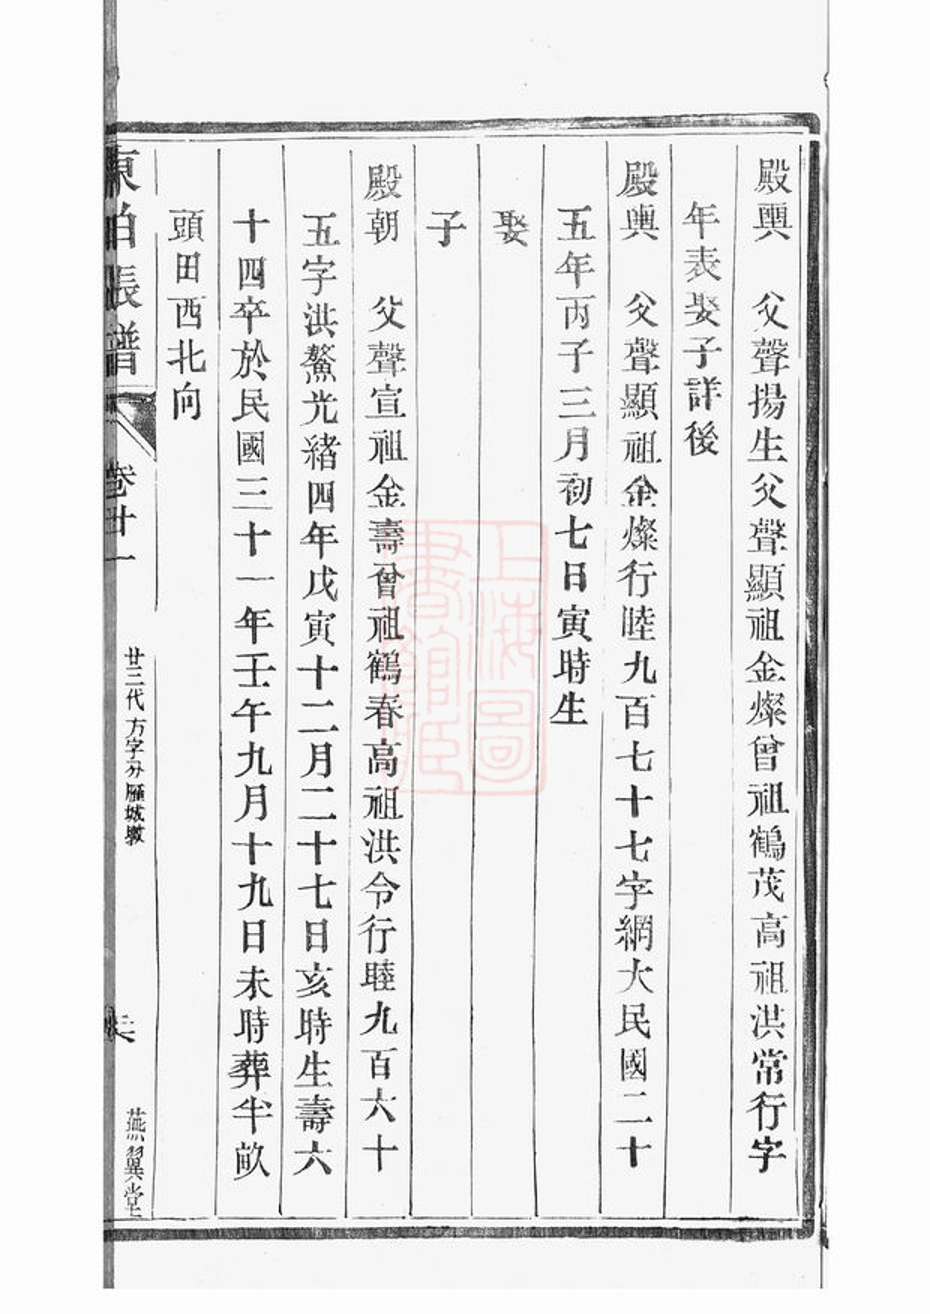 殿輿　父聲揚生父聲顯祖金燦曾祖鶴茂高祖洪常行字
年表娶子詳後
殿輿　父聲顯祖金燦行睦九百七十七字網大民國二十
五年丙子三月初七日寅時生
娶
子
殿朝　父聲宣祖金壽曾祖鶴春高祖洪令行睦九百六十
五字洪鰲光緒四年戊寅十二月二十七日亥時生壽六
十四卒於民國三十一年壬午九月十九日未時葬半畝
頭田西北向
張譜　卷廿一
廿三代方字分雁城墩
燕翼堂
上海圖書館藏